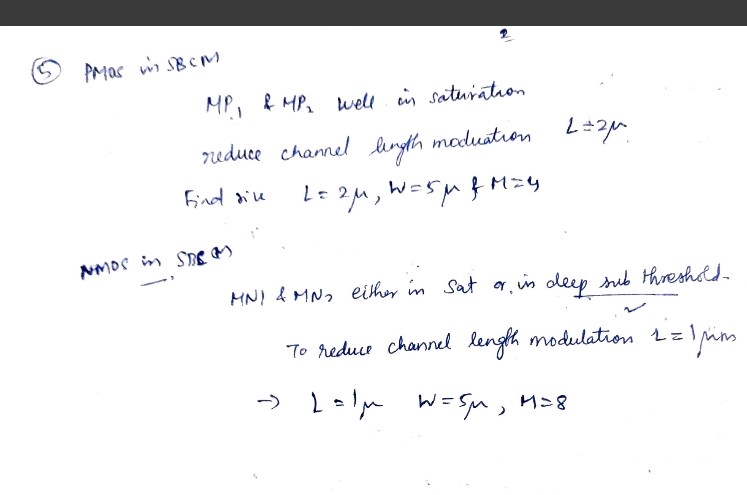 2
⑤ PMOS in SBCM
MP1 & MP2 well in saturation
reduce channel length moduation L=2μ
Find size L=2μ, W=5μ & M=4
NMOS in SBCM
MN1 & MN2 either in Sat or in deep sub threshold.
To reduce channel length modulation L=1μm
→ L=1μ W=5μ, M=8